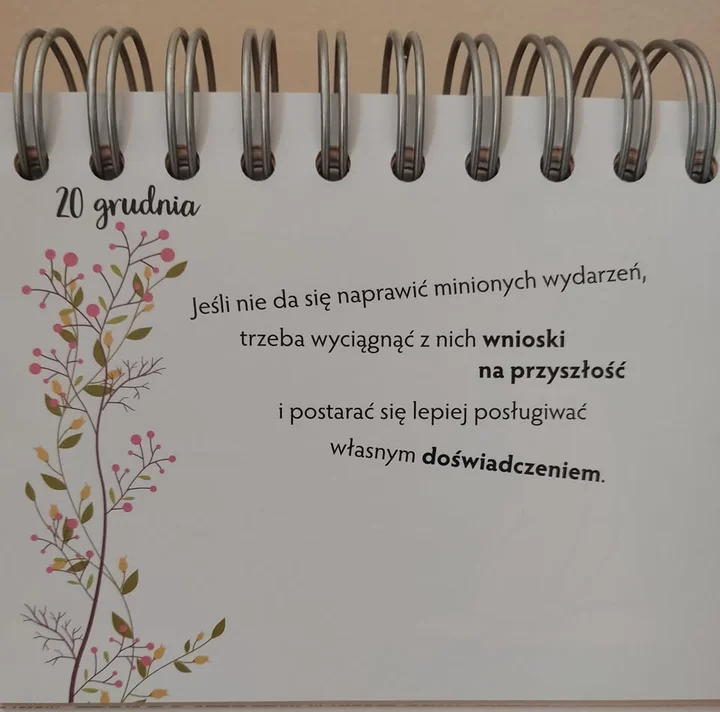 20 grudnia
Jeśli nie da się naprawić minionych wydarzeń,
trzeba wyciągnąć z nich wnioski
na przyszłość
i postarać się lepiej posługiwać
własnym doświadczeniem.